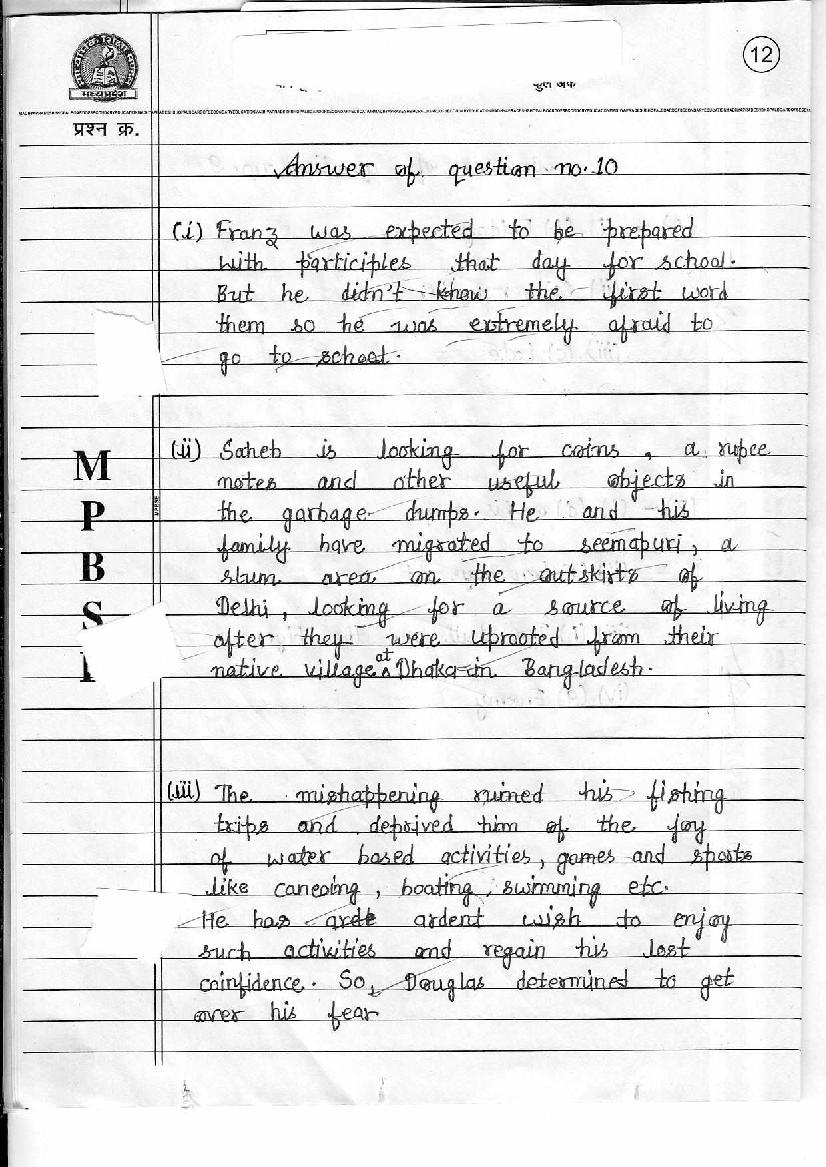 12
मध्यप्रदेश
कुल अंक
प्रश्न क्र.
Answer of question no. 10
(i) Franz was expected to be prepared
with participles that day for school.
But he didn't know the first word
them so he was extremely afraid to
go to school.
M
P
B
S
(ii) Saheb is looking for coins, a rupee
notes and other useful objects in
the garbage dumps. He and his
family have migrated to seemapuri, a
slum area on the outskirts of
Delhi, looking for a source of living
after they were uprooted from their
native village at Dhaka in Bangladesh.
(iii) The mishappening ruined his fishing
trips and deprived him of the joy
of water based activities, games and sports
like caneoing, boating, swimming etc.
He has ardent wish to enjoy
such activities and regain his lost
coinfidence. So, Douglas determined to get
over his fear